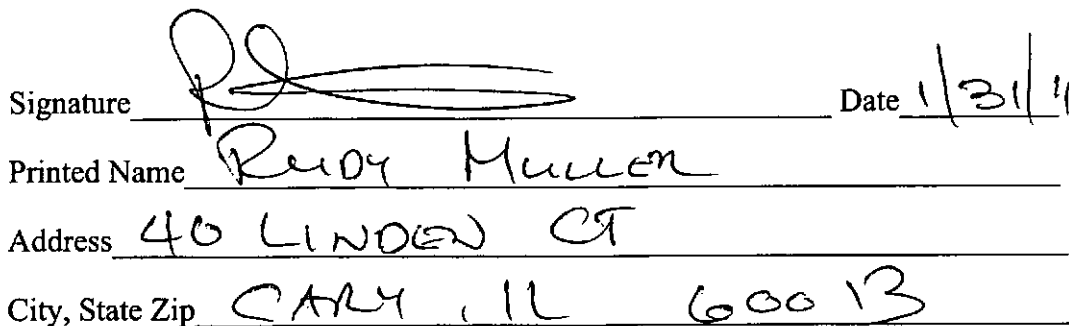 Signature Date 1/31/1
Printed Name RUDY MULLER
Address 40 LINDEN CT
City, State Zip CARY, IL 60013